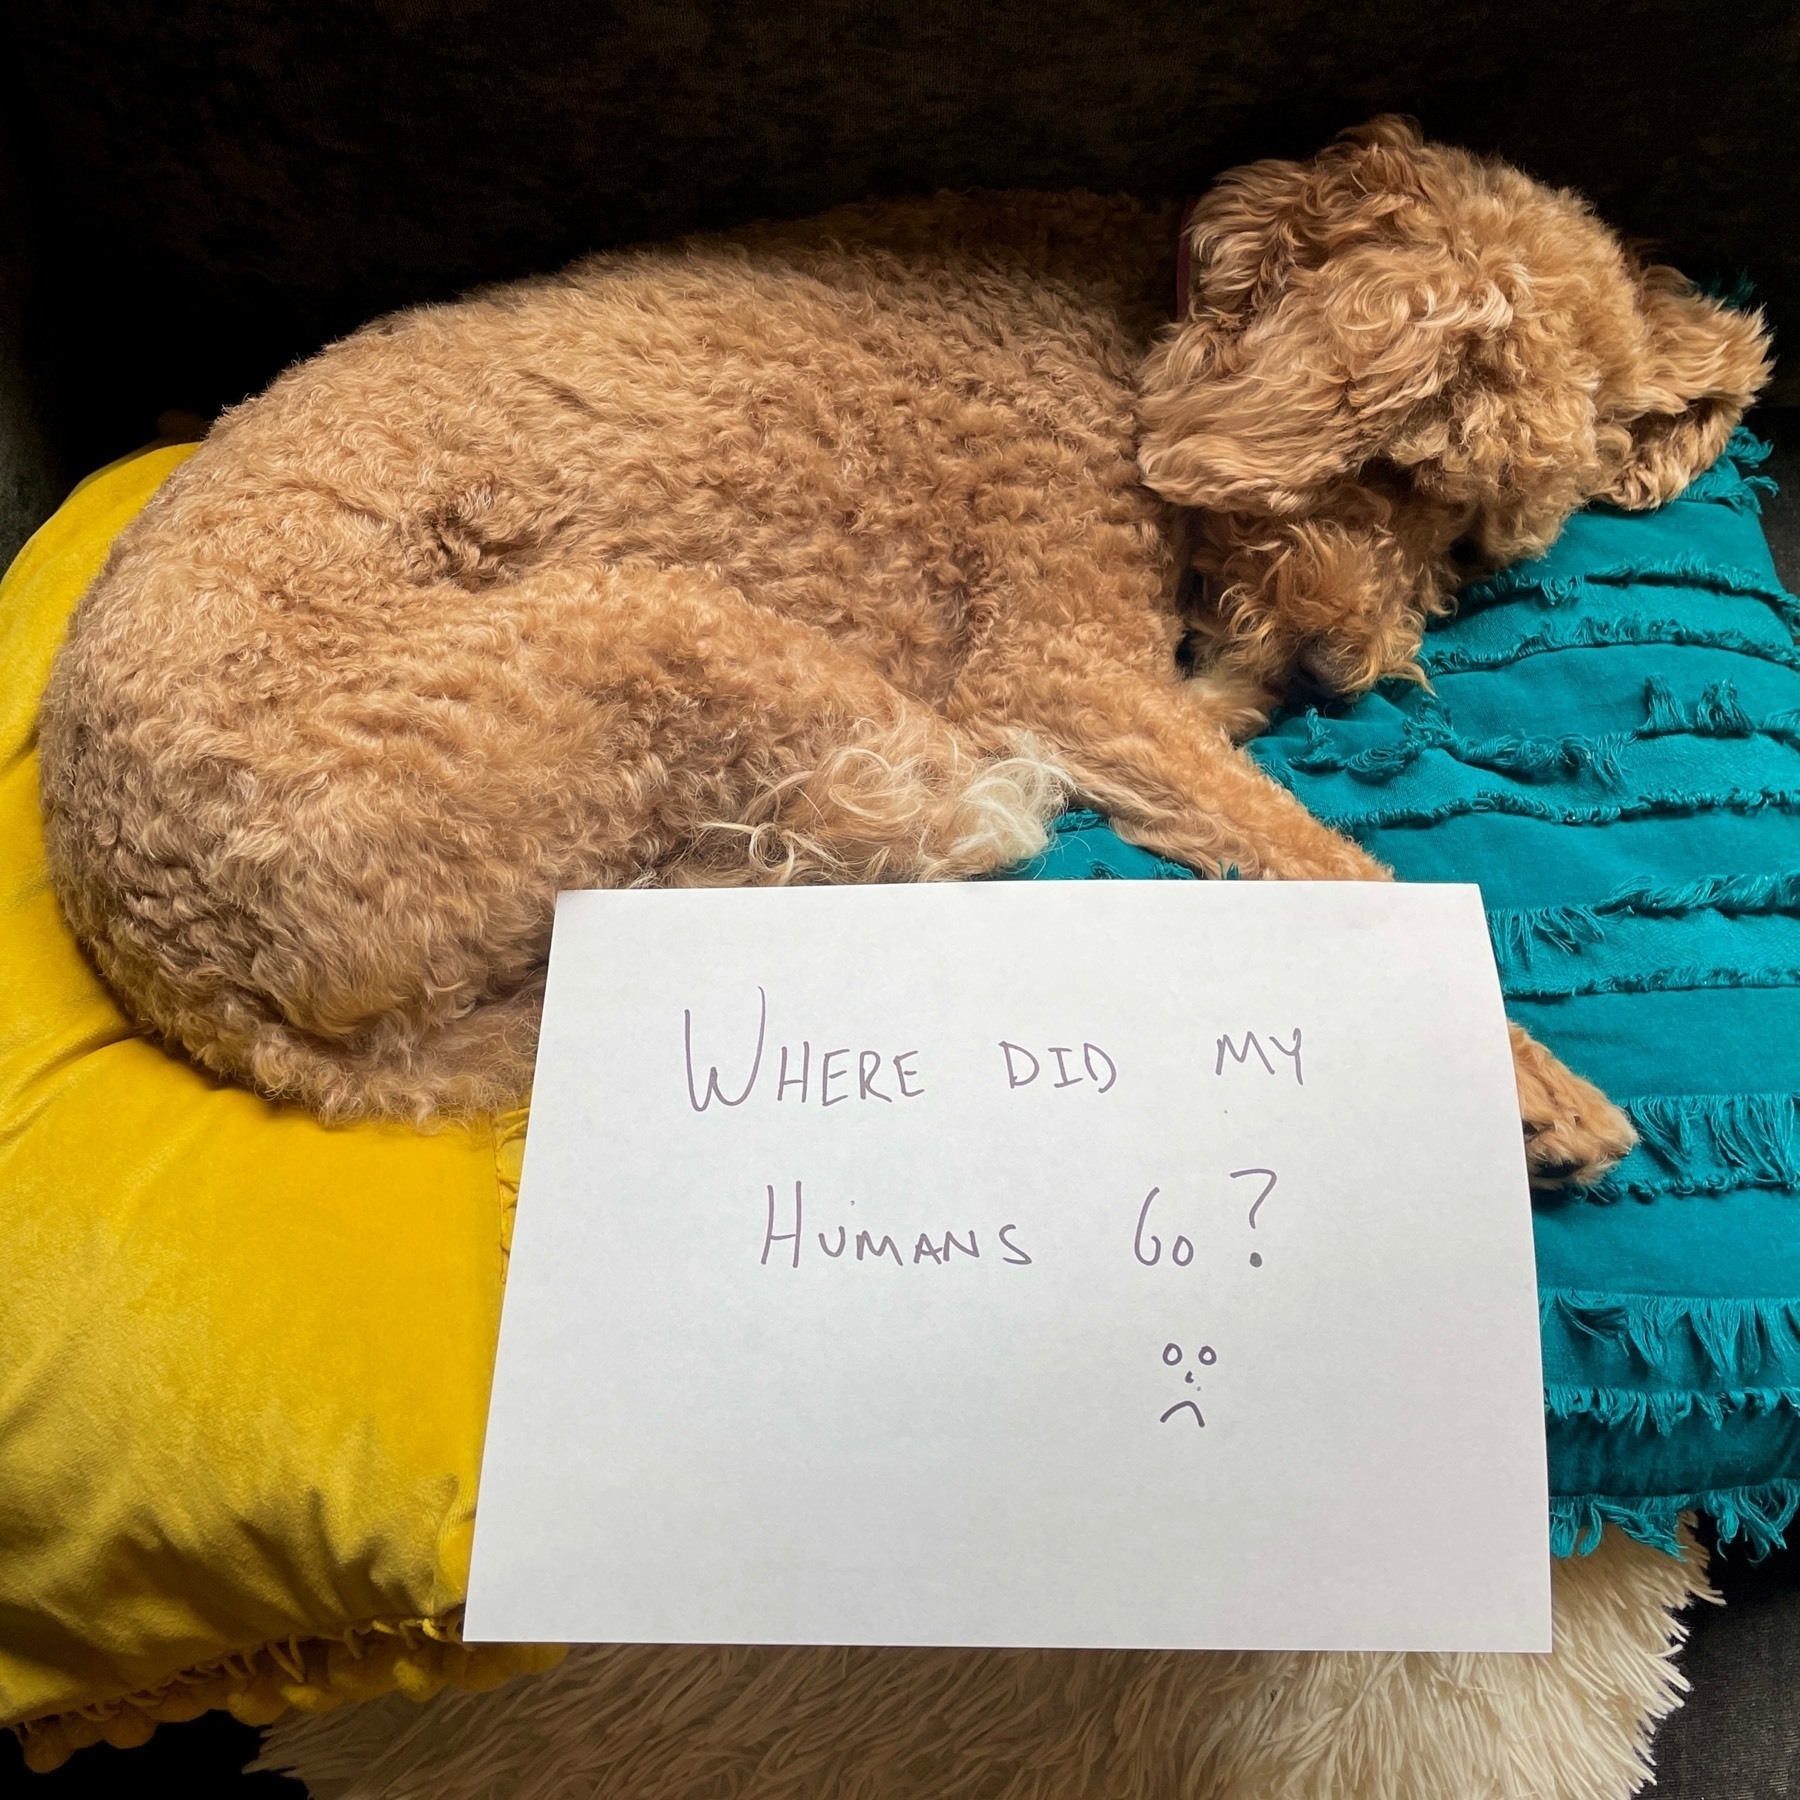 WHERE DID MY
HUMANS GO?